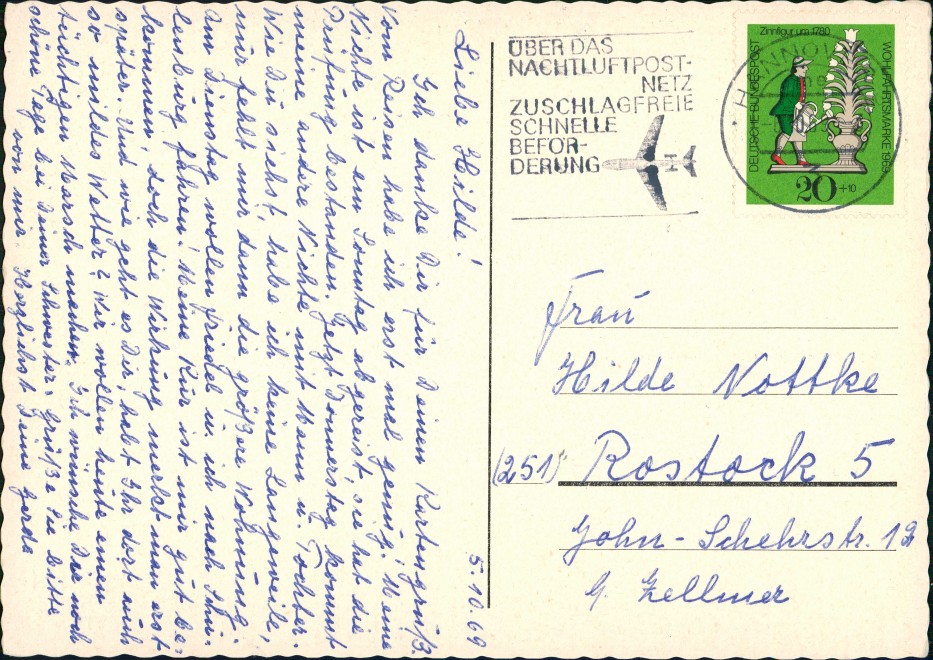 5.10.69
Liebe Hilde!
Ich danke Dir für Deinen Kartengruß.
Vom Reisen habe ich erst mal genug. Meine
Nichte ist am Sonntag abgereist, sie hat die
Prüfung bestanden. Jetzt Donnerstag kommt
meine andere Nichte mit Mann u. Tochter.
Wie Du siehst, habe ich keine Langeweile,
nur fehlt mir dann die größere Wohnung.
Am Dienstag wollen Friedel u. ich nach
lenburg fahren. Meine Kur ist mir gut be-
kommen, doch die Wirkung merkt man erst
später. Und wie geht es Dir, habt Ihr dort auch
so mildes Wetter? Wir wollen heute einen
tüchtigen Marsch machen. Ich wünsche Dir noch
schöne Tage bei Deiner Schwester. Grüße Sie bitte
von mir. Herzlichst Deine Gerda
ÜBER DAS
NACHTLUFTPOST-
NETZ
ZUSCHLAGFREIE
SCHNELLE
BEFÖR-
DERUNG
Zinnfigur um 1780
DEUTSCHE BUNDESPOST
WOHLFAHRTSMARKE 1969
20 +10
Frau
Hilde Nottke
(251) Rostock 5
John-Schehrstr. 12
b/ Zellmer